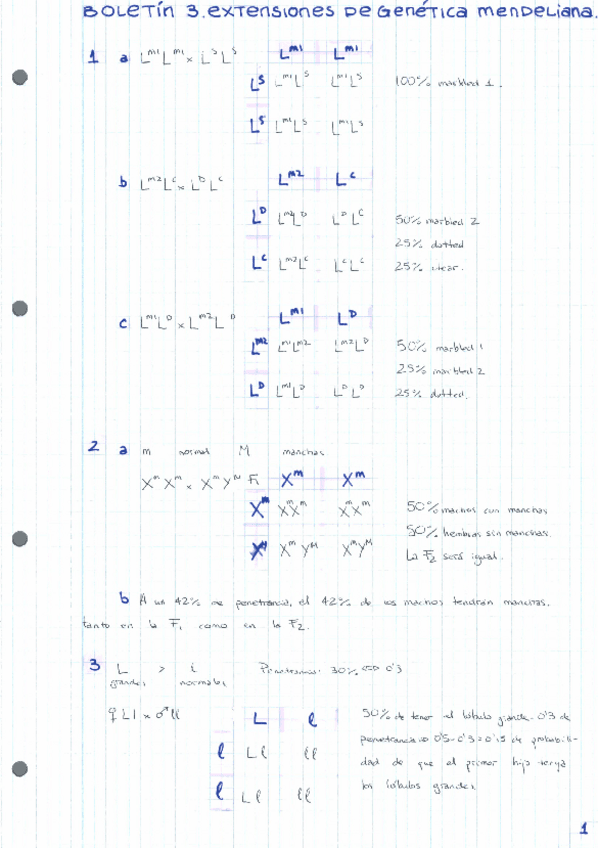 BOLETÍN 3. EXTENSIONES DE GENÉTICA MENDELIANA.
1 a L^m1 L^m1 x L^S L^S L^m1 L^m1
L^S L^m1 L^S L^m1 L^S 100% marbled 1.
L^S L^m1 L^S L^m1 L^S
b L^m2 L^C x L^D L^C L^m2 L^C
L^D L^m2 L^D L^D L^C 50% marbled 2
25% dotted
L^C L^m2 L^C L^C L^C 25% clear.
c L^m1 L^D x L^m2 L^D L^m1 L^D
L^m2 L^m1 L^m2 L^m2 L^D 50% marbled 1
25% marbled 2
L^D L^m1 L^D L^D L^D 25% dotted.
2 a m normal M manchas
X^m X^m x X^m Y^M F1 X^m X^m
X^m X^m X^m X^m X^m 50% machos con manchas
50% hembras sin manchas.
X^m Y^M X^m Y^M La F2 será igual.
b A un 42% de penetrancia, el 42% de los machos tendrán manchas,
tanto en la F1 como en la F2.
3 L > l Penetrancia: 30% => 0'3
grandes normales
♀ Ll x ♂ ll L l 50% de tener el lóbulo grande. 0'3 de
l Ll ll penetrancia => 0'5·0'3 = 0'15 de probabili-
dad de que el primer hijo tenga
l Ll ll los lóbulos grandes
1